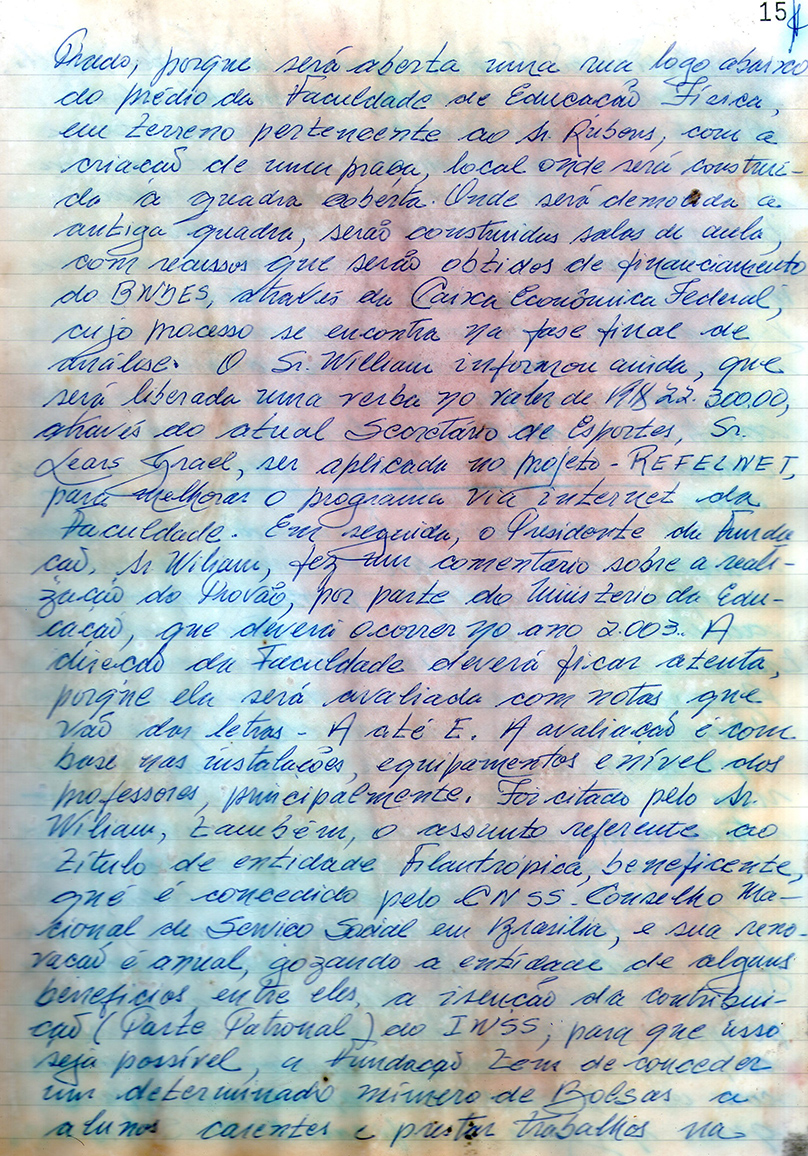 15
Prado, porque será aberta uma rua logo abaixo
do prédio da Faculdade de Educação Física,
em terreno pertencente ao Sr. Rubens, com a
criação de uma praça, local onde será construí-
da a quadra coberta. Onde será demolida a
antiga quadra, serão construidas salas de aula,
com recursos que serão obtidos de financiamento
do BNDES, através da Caixa Econômica Federal,
cujo processo se encontra na fase final de
análise. O Sr. William informou ainda, que
será liberada uma verba no valor de R$ 22.300.00,
através do atual Secretário de Esportes, Sr.
Lars Grael, ser aplicada no projeto - REFELNET,
para melhorar o programa via internet da
Faculdade. Em seguida, o Presidente da Funda
cão, Sr Wiliam, fez um comentário sobre a reali-
zação do Provão, por parte do Ministério da Edu-
cação, que deverá ocorrer no ano 2.003. A
direcão da Faculdade deverá ficar atenta,
porque ela será avaliada com notas, que
vão das letras - A até E. A avaliacão é com
base nas instalacões, equipamentos e nível dos
professores, principalmente. Foi citado pelo Sr.
Wiliam, também, o assunto referente ao
Título de entidade Filantrópica, beneficente,
que é concedido pelo CNSS - Conselho Na-
cional de Servico Social em Brasília, e sua reno-
vacão é anual, gozando a entidade de alguns
benefícios entre eles, a isenção da contribui-
cão (Parte Patronal) do INSS; para que isso
seja possível, a Fundação tem de conceder
um determinado número de Bolsas a
alunos carentes e prestar trabalhos na